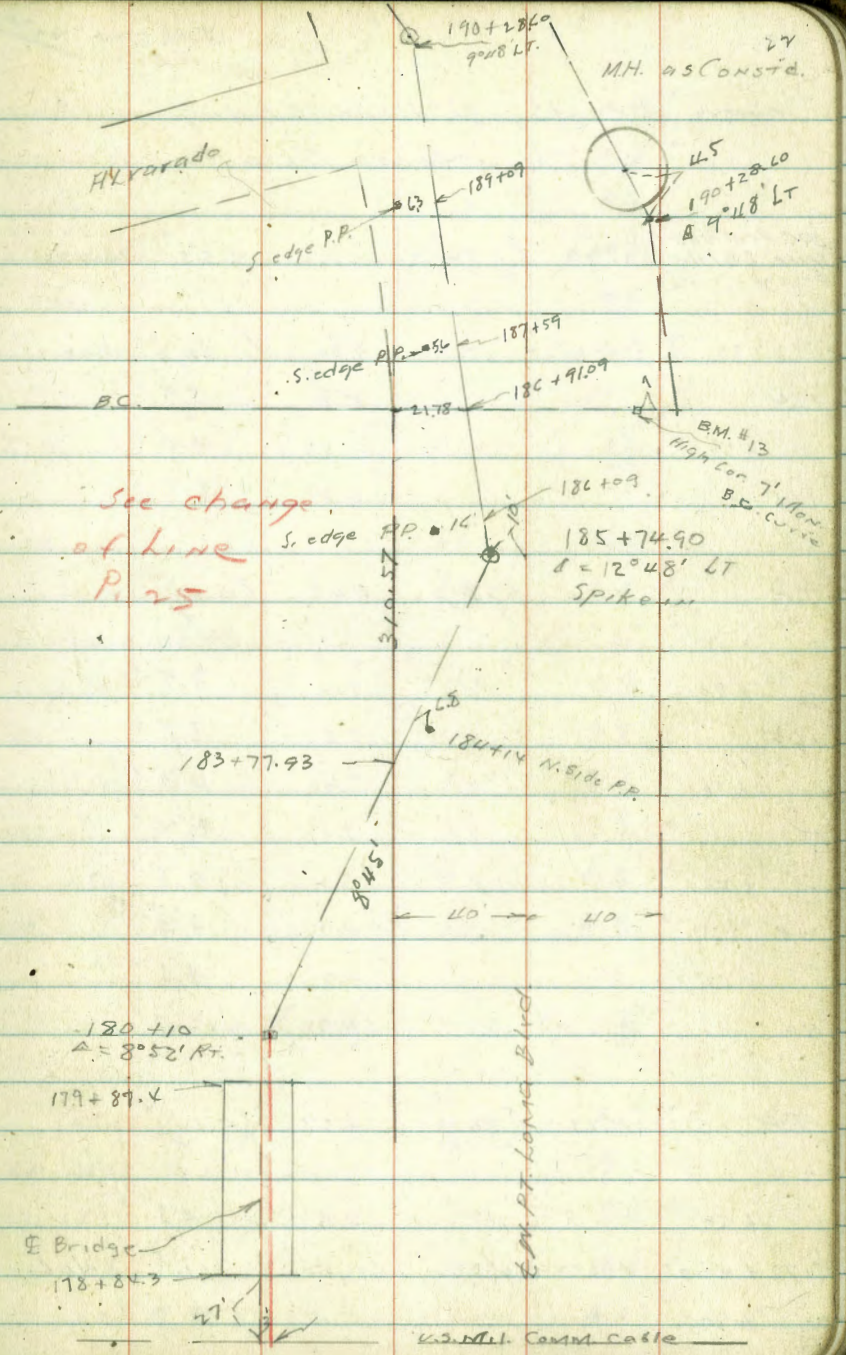 22
190+28.60
9°48' LT.
M.H. as Constd.
Alvarado
63
189+09
45
190+28.60
Δ 9°48' LT
S. edge P.P.
S. edge P.P. 56
187+59
186+91.09
B.C.
21.78
7
B.M. #13
High Cor. 7' Mon.
B.C. Curve
See change
of Line
P. 25
S. edge P.P. 16
186+09
10'
185+74.90
Δ = 12°48' LT
Spike in
310.57
6.8
184+14 N. side P.P.
183+77.93
8°45'
40'
40
180+10
Δ = 8°52' RT.
179+87.4
PT. LOMA Blvd.
℄ Bridge
178+84.3
27'
3'
U.S. Mil. Comm. Cable